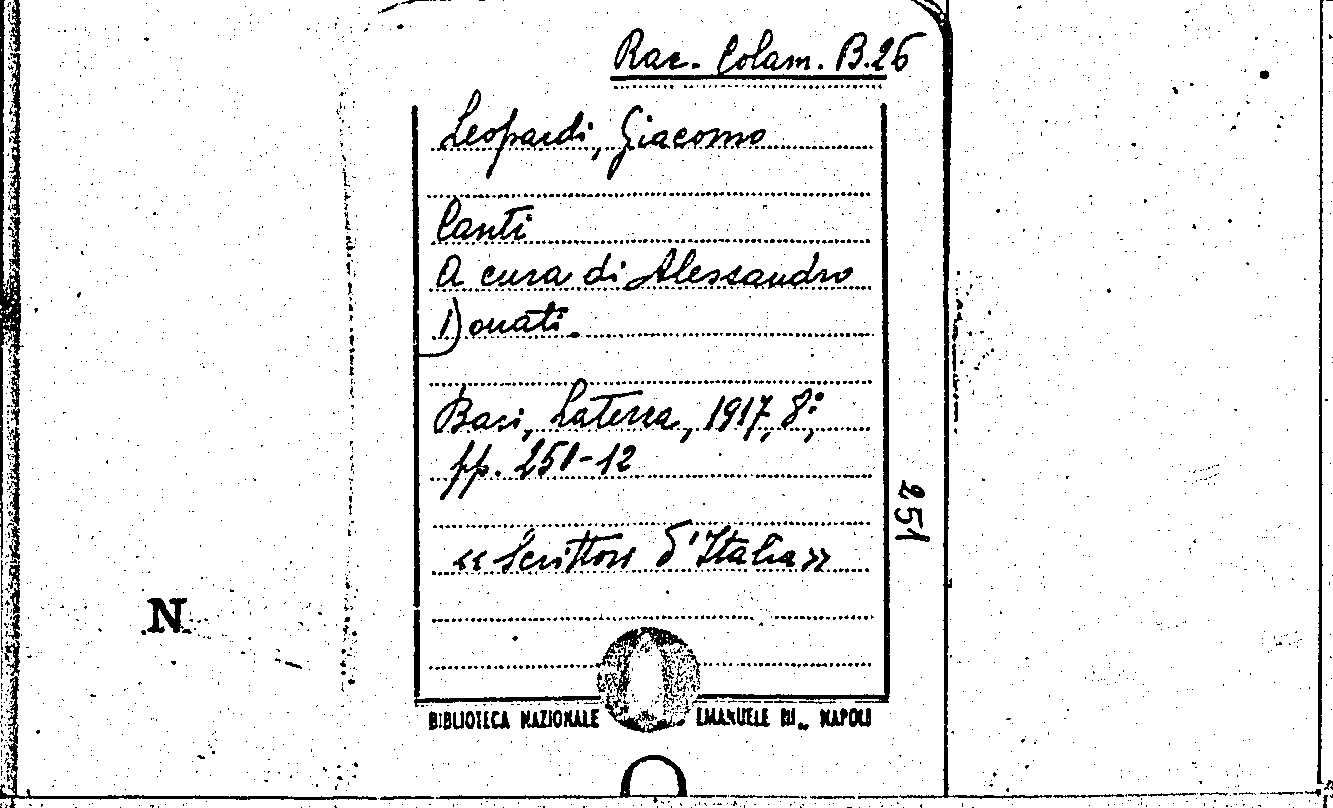 Rac. Colam. B.26
Leopardi, Giacomo
Canti
A cura di Alessandro
Donati.
Bari, Laterza, 1917, 8°,
pp. 251-12
«Scrittori d'Italia»
251
N
BIBLIOTECA NAZIONALE EMANUELE III„ NAPOLI